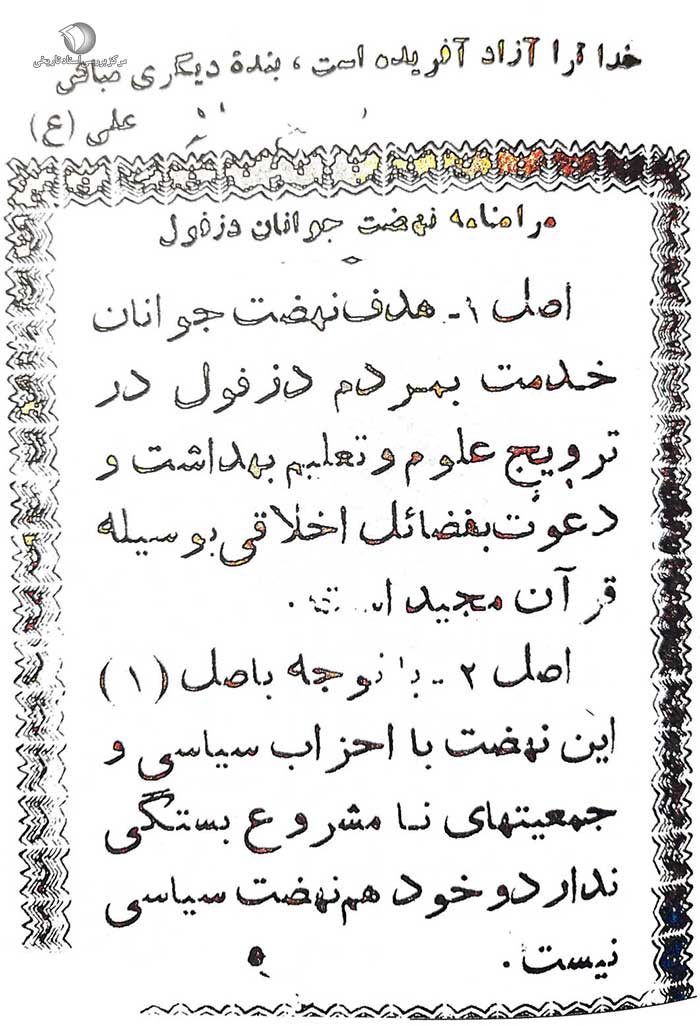 مرکز بررسی اسناد تاریخی
خدا ترا آزاد آفریده است ، بندهٔ دیگری مباش
علی (ع)
مرامنامه نهضت جوانان دزفول
اصل ۱ـ هدف نهضت جوانان
خدمت بمردم دزفول در
ترویج علوم و تعلیم بهداشت و
دعوت بفضائل اخلاقی بوسیله
قرآن مجید است .
اصل ۲ ـ با توجه باصل (۱)
این نهضت با احزاب سیاسی و
جمعیتهای نا مشروع بستگی
ندارد و خود هم نهضت سیاسی
نیست .